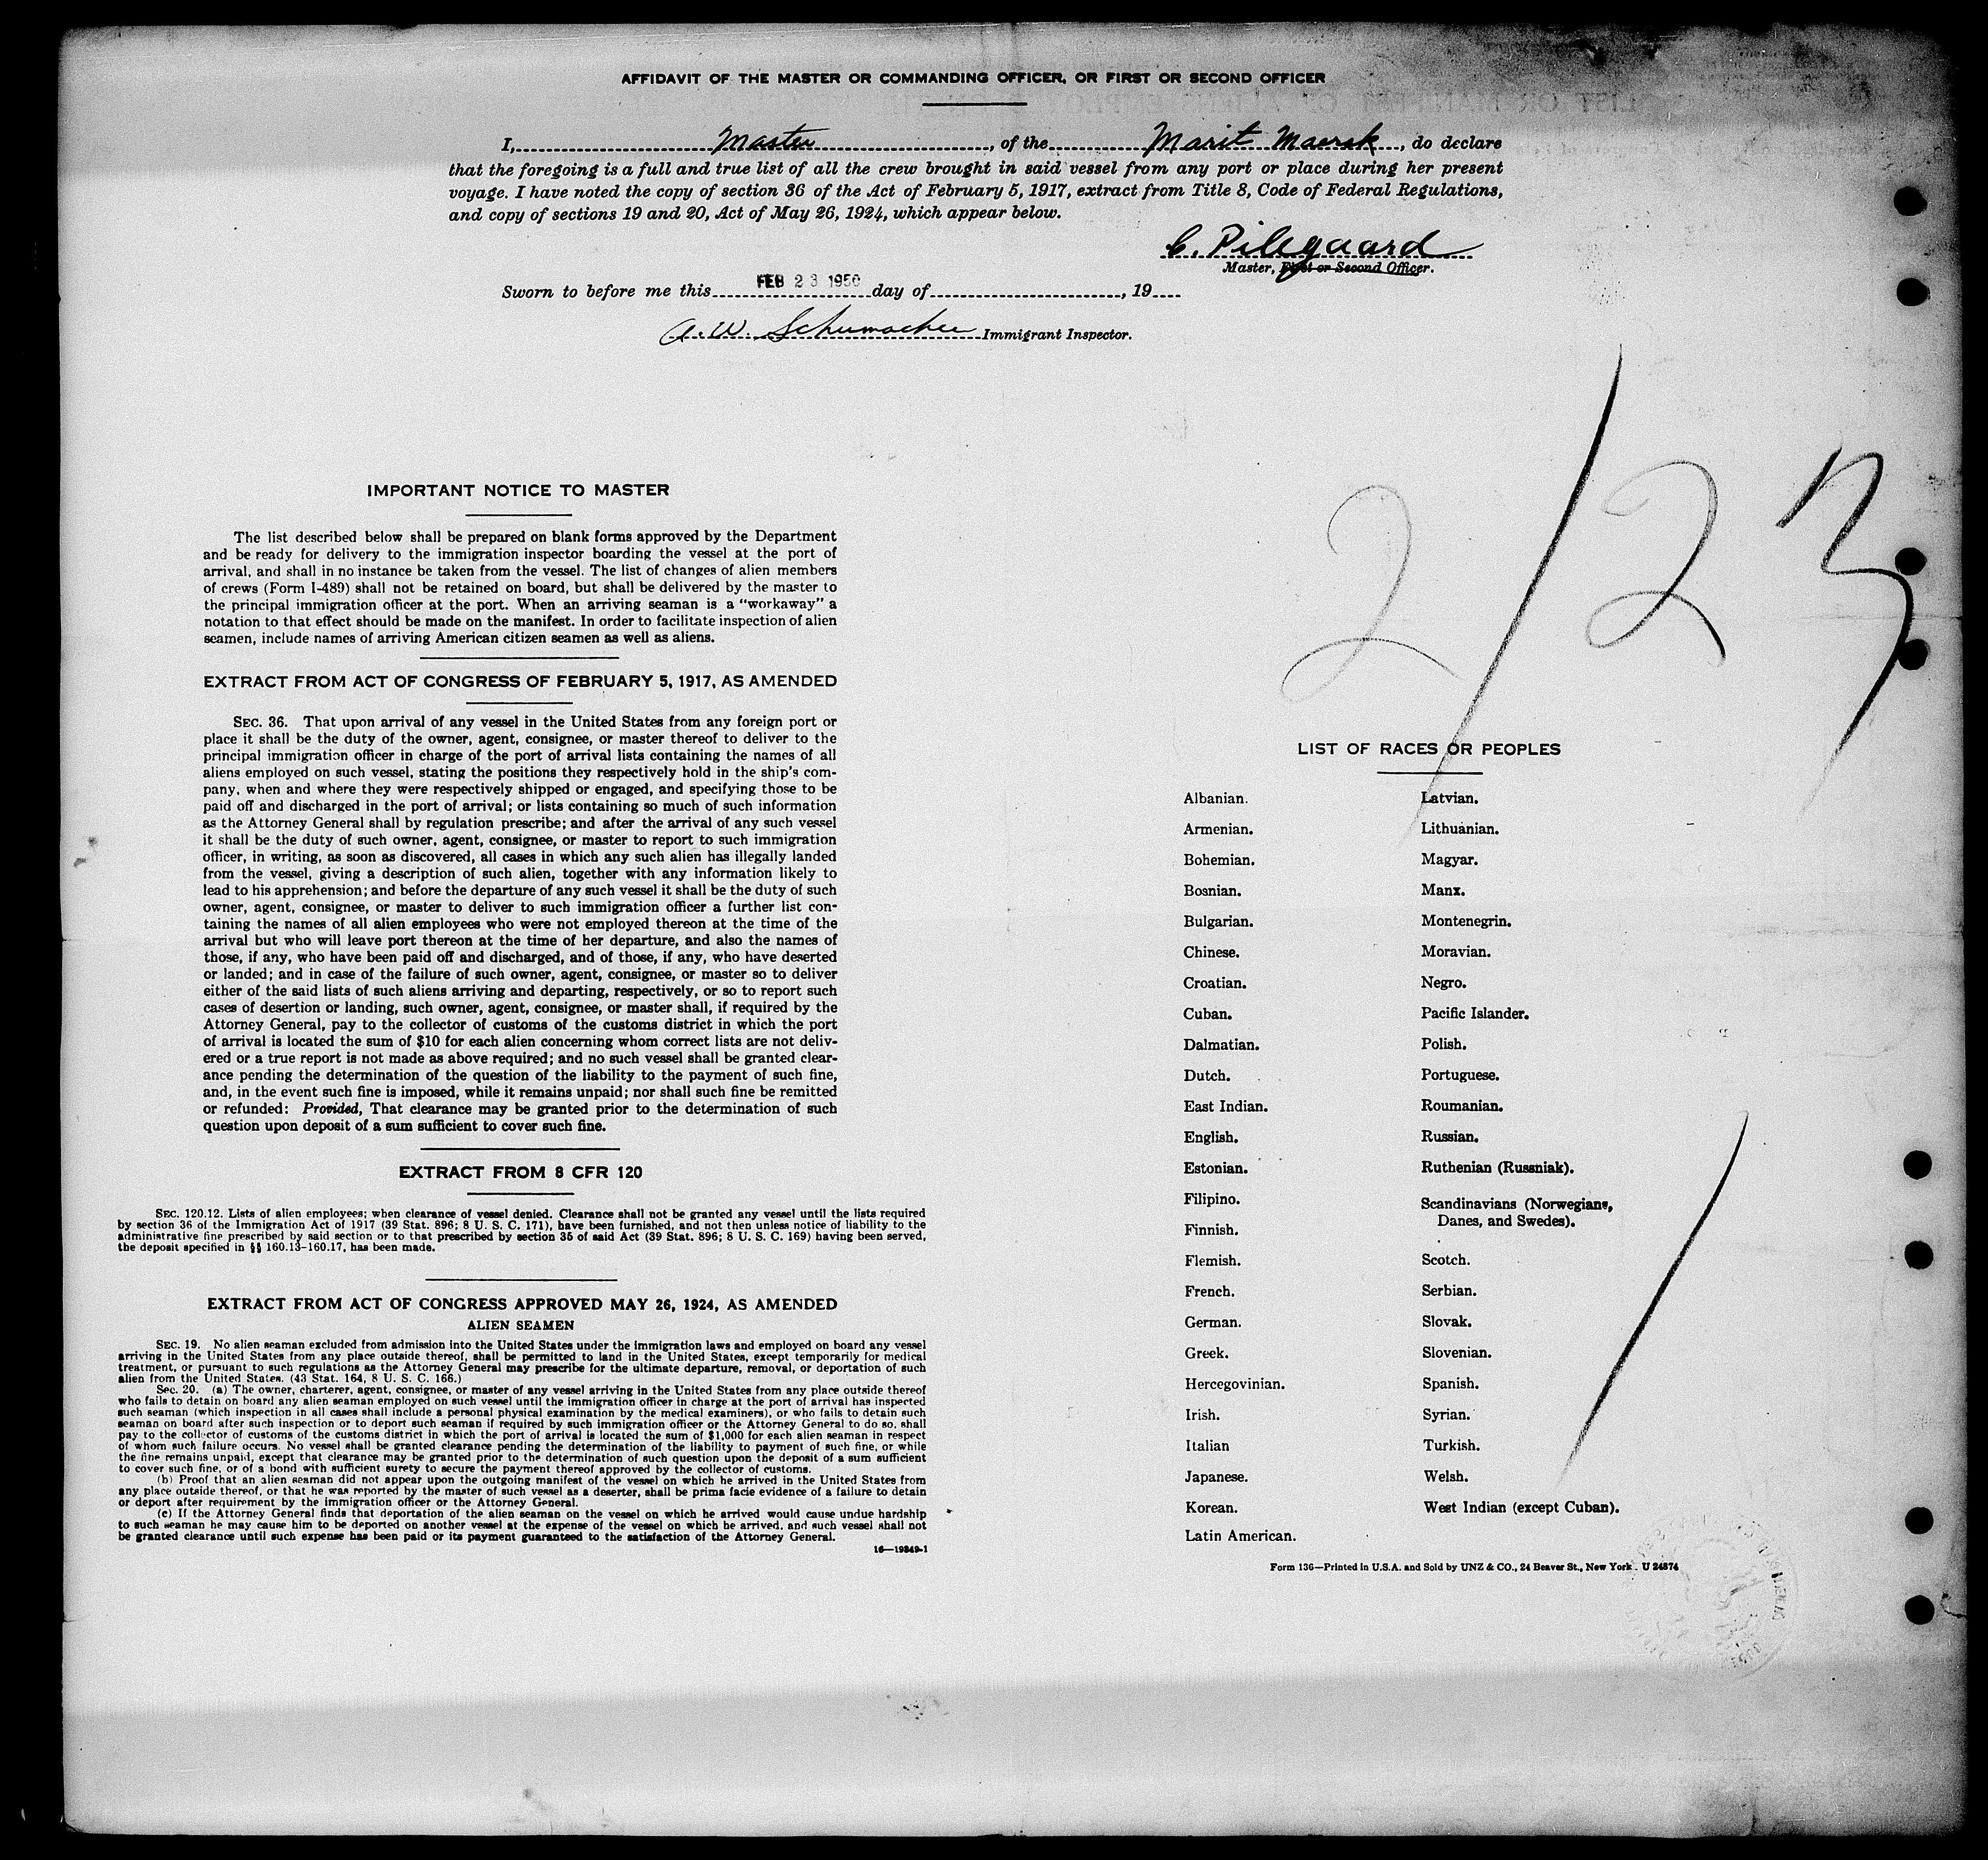 AFFIDAVIT OF THE MASTER OR COMMANDING OFFICER, OR FIRST OR SECOND OFFICER
I, Master, of the Marit Maersk, do declare
that the foregoing is a full and true list of all the crew brought in said vessel from any port or place during her present
voyage. I have noted the copy of section 36 of the Act of February 5, 1917, extract from Title 8, Code of Federal Regulations,
and copy of sections 19 and 20, Act of May 26, 1924, which appear below.
C. Pilegaard
Master, First or Second Officer.
Sworn to before me this FEB 23 1950 day of , 19
A. W. Schumacher Immigrant Inspector.
2/23
IMPORTANT NOTICE TO MASTER
The list described below shall be prepared on blank forms approved by the Department
and be ready for delivery to the immigration inspector boarding the vessel at the port of
arrival, and shall in no instance be taken from the vessel. The list of changes of alien members
of crews (Form I-489) shall not be retained on board, but shall be delivered by the master to
the principal immigration officer at the port. When an arriving seaman is a "workaway" a
notation to that effect should be made on the manifest. In order to facilitate inspection of alien
seamen, include names of arriving American citizen seamen as well as aliens.
EXTRACT FROM ACT OF CONGRESS OF FEBRUARY 5, 1917, AS AMENDED
SEC. 36. That upon arrival of any vessel in the United States from any foreign port or
place it shall be the duty of the owner, agent, consignee, or master thereof to deliver to the
principal immigration officer in charge of the port of arrival lists containing the names of all
aliens employed on such vessel, stating the positions they respectively hold in the ship's com-
pany, when and where they were respectively shipped or engaged, and specifying those to be
paid off and discharged in the port of arrival; or lists containing so much of such information
as the Attorney General shall by regulation prescribe; and after the arrival of any such vessel
it shall be the duty of such owner, agent, consignee, or master to report to such immigration
officer, in writing, as soon as discovered, all cases in which any such alien has illegally landed
from the vessel, giving a description of such alien, together with any information likely to
lead to his apprehension; and before the departure of any such vessel it shall be the duty of such
owner, agent, consignee, or master to deliver to such immigration officer a further list con-
taining the names of all alien employees who were not employed thereon at the time of the
arrival but who will leave port thereon at the time of her departure, and also the names of
those, if any, who have been paid off and discharged, and of those, if any, who have deserted
or landed; and in case of the failure of such owner, agent, consignee, or master so to deliver
either of the said lists of such aliens arriving and departing, respectively, or so to report such
cases of desertion or landing, such owner, agent, consignee, or master shall, if required by the
Attorney General, pay to the collector of customs of the customs district in which the port
of arrival is located the sum of $10 for each alien concerning whom correct lists are not deliv-
ered or a true report is not made as above required; and no such vessel shall be granted clear-
ance pending the determination of the question of the liability to the payment of such fine,
and, in the event such fine is imposed, while it remains unpaid; nor shall such fine be remitted
or refunded: Provided, That clearance may be granted prior to the determination of such
question upon deposit of a sum sufficient to cover such fine.
EXTRACT FROM 8 CFR 120
SEC. 120.12. Lists of alien employees; when clearance of vessel denied. Clearance shall not be granted any vessel until the lists required
by section 36 of the Immigration Act of 1917 (39 Stat. 896; 8 U. S. C. 171), have been furnished, and not then unless notice of liability to the
administrative fine prescribed by said section or to that prescribed by section 35 of said Act (39 Stat. 896; 8 U. S. C. 169) having been served,
the deposit specified in §§ 160.13-160.17, has been made.
EXTRACT FROM ACT OF CONGRESS APPROVED MAY 26, 1924, AS AMENDED
ALIEN SEAMEN
SEC. 19. No alien seaman excluded from admission into the United States under the immigration laws and employed on board any vessel
arriving in the United States from any place outside thereof, shall be permitted to land in the United States, except temporarily for medical
treatment, or pursuant to such regulations as the Attorney General may prescribe for the ultimate departure, removal, or deportation of such
alien from the United States. (43 Stat. 164, 8 U. S. C. 166.)
Sec. 20. (a) The owner, charterer, agent, consignee, or master of any vessel arriving in the United States from any place outside thereof
who fails to detain on board any alien seaman employed on such vessel until the immigration officer in charge at the port of arrival has inspected
such seaman (which inspection in all cases shall include a personal physical examination by the medical examiners), or who fails to detain such
seaman on board after such inspection or to deport such seaman if required by such immigration officer or the Attorney General to do so, shall
pay to the collector of customs of the customs district in which the port of arrival is located the sum of $1,000 for each alien seaman in respect
of whom such failure occurs. No vessel shall be granted clearance pending the determination of the liability to payment of such fine, or while
the fine remains unpaid, except that clearance may be granted prior to the determination of such question upon the deposit of a sum sufficient
to cover such fine, or of a bond with sufficient surety to secure the payment thereof approved by the collector of customs.
(b) Proof that an alien seaman did not appear upon the outgoing manifest of the vessel on which he arrived in the United States from
any place outside thereof, or that he was reported by the master of such vessel as a deserter, shall be prima facie evidence of a failure to detain
or deport after requirement by the immigration officer or the Attorney General.
(c) If the Attorney General finds that deportation of the alien seaman on the vessel on which he arrived would cause undue hardship
to such seaman he may cause him to be deported on another vessel at the expense of the vessel on which he arrived, and such vessel shall not
be granted clearance until such expense has been paid or its payment guaranteed to the satisfaction of the Attorney General.
16—19849-1
LIST OF RACES OR PEOPLES
Albanian.
Armenian.
Bohemian.
Bosnian.
Bulgarian.
Chinese.
Croatian.
Cuban.
Dalmatian.
Dutch.
East Indian.
English.
Estonian.
Filipino.
Finnish.
Flemish.
French.
German.
Greek.
Hercegovinian.
Irish.
Italian
Japanese.
Korean.
Latin American.
Latvian.
Lithuanian.
Magyar.
Manx.
Montenegrin.
Moravian.
Negro.
Pacific Islander.
Polish.
Portuguese.
Roumanian.
Russian.
Ruthenian (Russniak).
Scandinavians (Norwegians,
Danes, and Swedes).
Scotch.
Serbian.
Slovak.
Slovenian.
Spanish.
Syrian.
Turkish.
Welsh.
West Indian (except Cuban).
Form 136—Printed in U.S.A. and Sold by UNZ & CO., 24 Beaver St., New York . U 24574